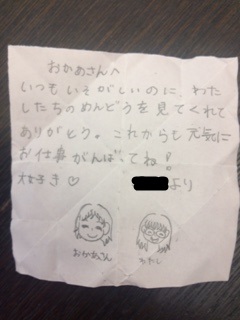 おかあさんへ
いつもいそがしいのに、わた
したちのめんどうを見てくれて
ありがとう。これからも元気に
お仕事がんばってね！
大好き♡
より
おかあさん
わたし